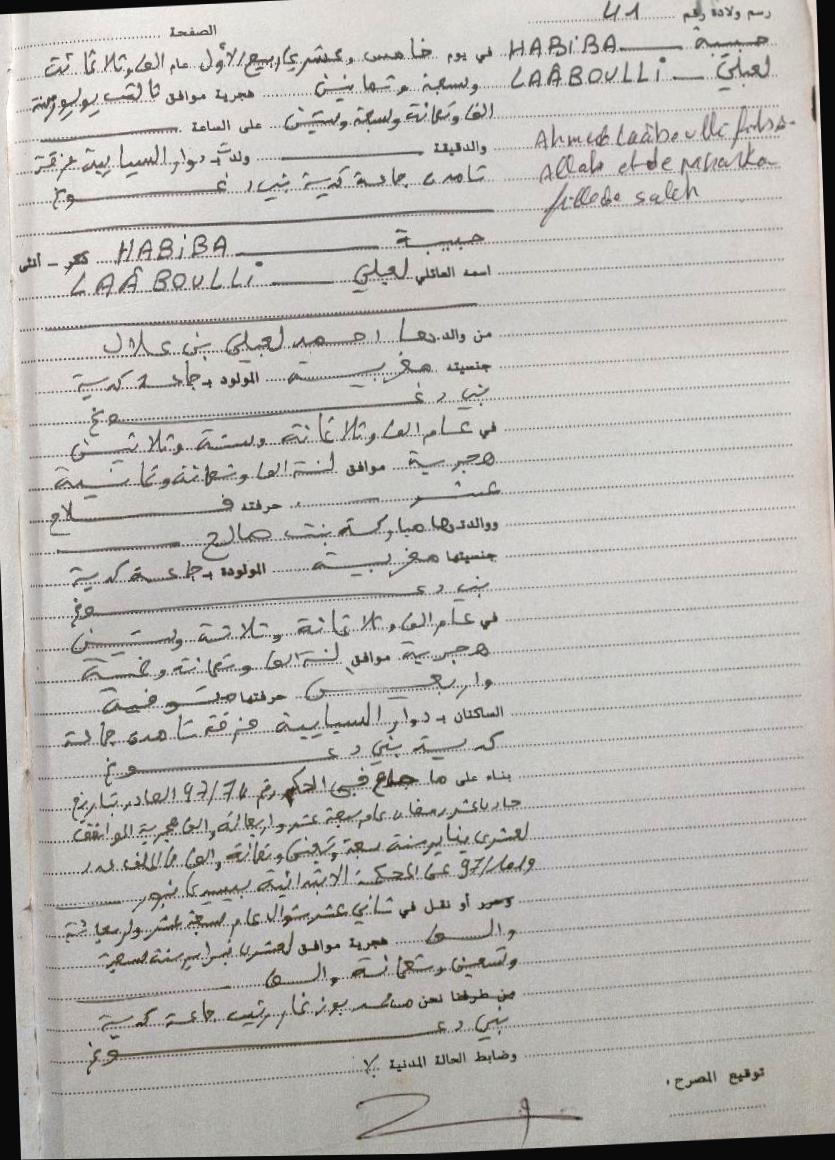 رسم ولادة رقم 41
الصفحة
حبيبة HABIBA في يوم خامس وعشري ربيع الأول عام الف وثلاثمائة
لعبلي LAÂBOULLI وسبعة وثمانين هجرية موافق ثالث يوليوز سنة
الف وتسعمائة وسبعة وستين على الساعة
والدقيقة ولدت بدوار السيابية فرقة
Ahmed Laâboulli fils
Allah et de Mbarka
fille de saleh
تامدى جماعة كدية بني دغوغ
حبيبة HABIBA ذكر - أنثى
اسمه العائلي لعبلي LAÂBOULLI
من والدها احمد لعبلي بن علال
جنسيته مغربية المولود بجماعة كدية
بني دغوغ
في عام الف وثلاثمائة وستة وثلاثين
هجرية موافق لسنة الف وتسعمائة وثمانية
عشر حرفته فلاح
ووالدتها مباركة بنت صالح
جنسيتها مغربية المولودة بجماعة كدية
بني دغوغ
في عام الف وثلاثمائة وثلاثة وستين
هجرية موافق لسنة الف وتسعمائة وخمسة
واربعين حرفتها متوفية
الساكنان بدوار السيابية فرقة تامدى جماعة
كدية بني دغوغ
بناء على ما جاء في الحكم رقم 97/74 الصادر بتاريخ
حادي عشر رمضان عام سبعة عشر واربعمائة والف هجرية الموافق
لعشرى يناير سنة سبعة وتسعين وتسعمائة والف ملف عدد
97/ عن المحكمة الابتدائية بسيدي بنور
وحرر أو نقل في ثاني عشر شوال عام سبعة عشر واربعمائة
والف هجرية موافق لعشرى فبراير سنة سبعة
وتسعين وتسعمائة والف
من طرفنا نحن محمد بوزغار رئيس جماعة كدية
بني دغوغ
وضابط الحالة المدنية
توقيع المصرح،